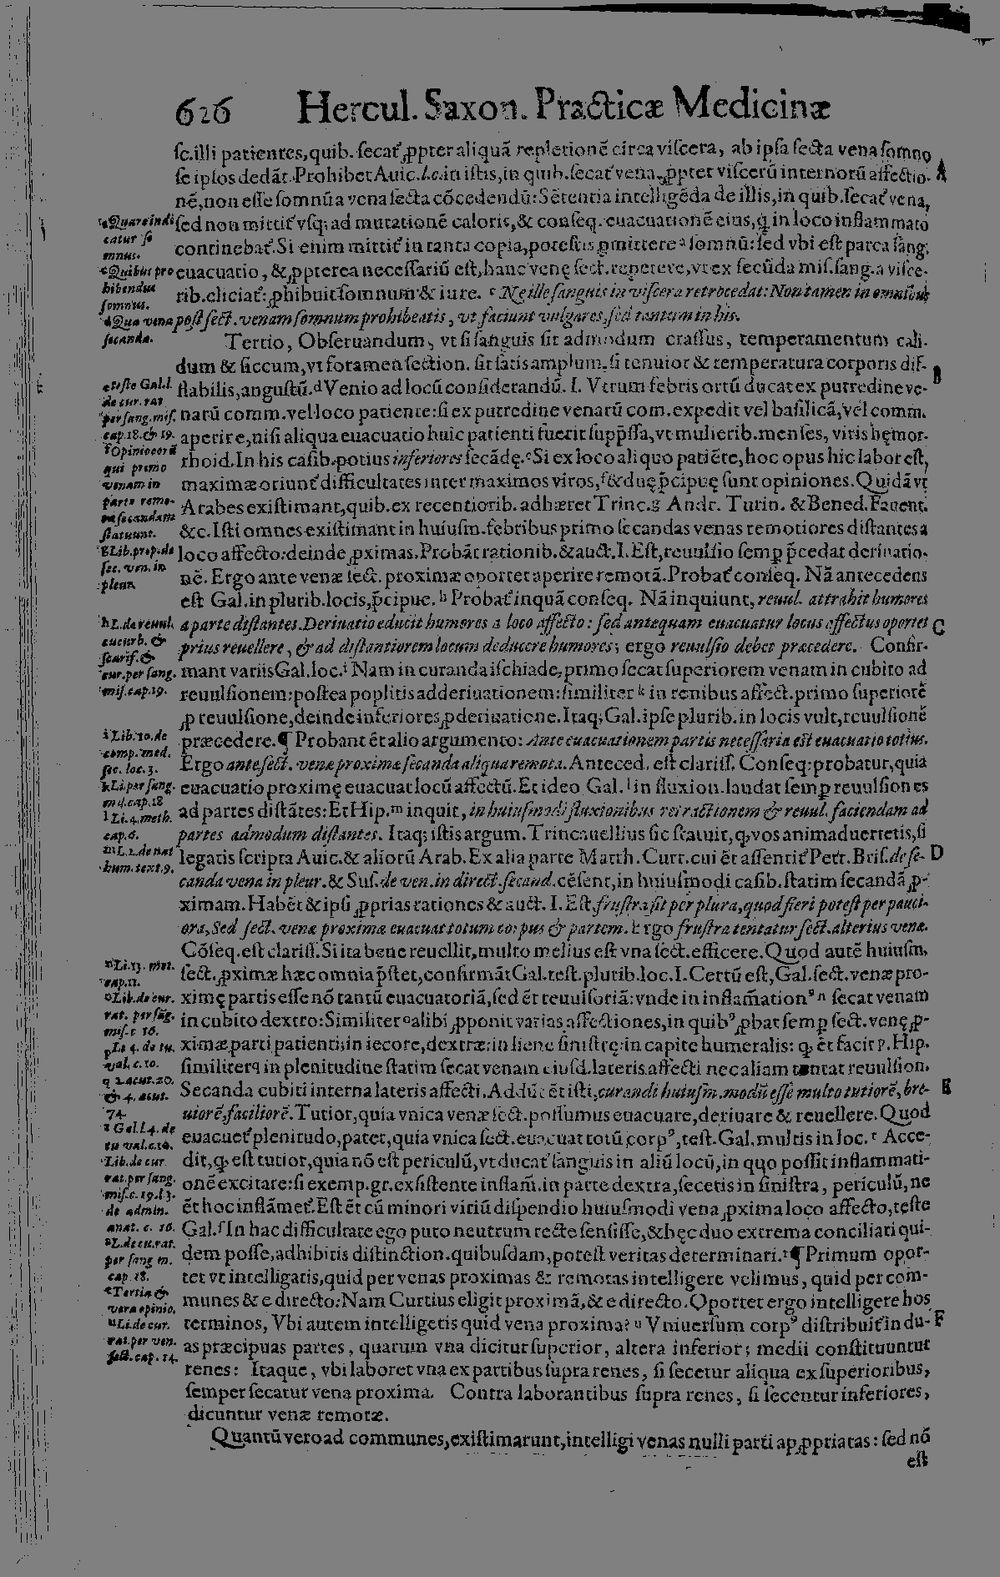 626 Hercul. Saxon. Practicæ Medicinæ
ſc. illi patientes, quib. ſecat̃, ꝓpter aliquã repletionẽ circa viſcera, ab ipſa ſecta vena ſomno
ſe ipſos dedãt. Prohibet Auic. l.c. in iſtis, in quib. ſecat̃ vena, ꝓpter viſcerũ internorũ affectio-
nẽ, non eſſe ſomnũ a vena ſecta cõcedendũ: Sẽtentia intelligẽda de illis, in quib. ſecat̃ vena,
ſed non mittit̃ vſq; ad mutationẽ caloris, & conſeq. euacuationẽ eius, ꝙ in loco inflammato
continebat̃. Si enim mittit̃ in tanta copia, poteſtis ꝑmittere ᵃ ſomnũ: ſed vbi eſt parca ſang.
euacuatio, & ꝓpterea neceſſariũ eſt, hanc venę ſect. repetere, vt ex ſecũda miſ. ſang. a viſce-
rib. eliciat̃: ꝓhibuit ſomnum & iure. ᶜ Ne ille ſanguis in viſcera retrocedat: Non tamen in omnibus
poſt ſect. venam ſomnum prohibeatis, vt faciunt vulgares, ſed tantum in his.
Tertio, Obſeruandum, vt ſi ſanguis ſit admodum craſſus, temperamentum cali-
dum & ſiccum, vt foramen ſection. ſit ſatis amplum. ſi tenuior & temperatura corporis dif-
flabilis, anguſtũ. ᵈ Venio ad locũ conſiderandũ. I. Vtrum febris ortũ ducat ex putredine ve-
narũ comm. vel loco patiente: ſi ex putredine venarũ com. expedit vel baſilicã, vel comm.
aperire, niſi aliqua euacuatio huic patienti fuerit ſupp̃ſſa, vt mulierib. menſes, viris hęmor-
rhoid. In his caſib. potius inferiores ſecãdę. ᵉ Si ex loco aliquo patiẽte, hoc opus hic labor eſt,
maximæ oriunt̃ difficultates inter maximos viros, ᶠ & duę p̃cipuę ſunt opiniones. Quidã vt
Arabes exiſtimant, quib. ex recentiorib. adhæret Trinc. ᵍ Andr. Turin. & Bened. Fauent.
&c. Iſti omnes exiſtimant in huiuſm. febribus primo ſecandas venas remotiores diſtantes a
loco affecto: deinde ꝓximas. Probãt rationib. & auct. I. Eſt, reuulſio ſemꝑ p̃cedat deriuatio-
nẽ. Ergo ante venæ ſect. proximæ oportet aperire remotã. Probat̃ conſeq. Nã antecedens
eſt Gal. in plurib. locis, p̃cipue. ʰ Probat̃ inquã conſeq. Nã inquiunt, reuul. attrahit humores
a parte diſtantes. Deriuatio educit humores a loco affecto: ſed antequam euacuatur locus affectus oportet
prius reuellere, & ad diſtantiorem locum deducere humores; ergo reuulſio debet præcedere. Confir-
mant variis Gal. loc. ⁱ Nam in curanda iſchiade, primo ſecat ſuperiorem venam in cubito ad
reuulſionem: poſtea poplitis ad deriuationem: ſimiliter ᵏ in renibus affect. primo ſuperiorẽ
ꝓ reuulſione, deinde inferiores ꝓ deriuatione. Itaq; Gal. ipſe plurib. in locis vult, reuulſionẽ
præcedere. ¶ Probant ẽt alio argumento: Ante euacuationem partis neceſſaria est euacuatio totius.
Ergo ante ſect. venæ proximæ ſecanda aliqua remota. Anteced. eſt clariſſ. Conſeq: probatur, quia
euacuatio proximę euacuat locũ affectũ. Et ideo Gal. ˡ in fluxion. laudat ſemꝑ reuulſiones
ad partes diſtãtes: Et Hip. ᵐ inquit, in huiuſmodi fluxionibus retractionem & reuul. faciendam ad
partes admodum diſtantes. Itaq; iſtis argum. Trincauellius ſic ſtatuit, ꝙ vos animaduertetis, ſi
legatis ſcripta Auic. & aliorũ Arab. Ex alia parte Matth. Curt. cui ẽt aſſentit̃ Petr. Briſ. de ſe-
canda vena in pleur. & Suſ. de ven. in direct. ſecand. cẽſent, in huiuſmodi caſib. ſtatim ſecandã ꝓ-
ximam. Habẽt & ipſi ꝓprias rationes & auct. I. Eſt, fruſtra fit per plura, quod fieri poteſt per pauci-
ora, Sed ſect. venæ proximæ euacuat totum corpus & partem. Ergo fruſtra tentatur ſect. alterius venæ.
Cõſeq. eſt clariſſ. Si ita bene reuellit, multo melius eſt vna ſect. efficere. Quod autẽ huiuſm.
ſect. ꝓximæ hæc omnia p̃ſtet, confirmãt Gal. teſt. plurib. loc. I. Certũ eſt, Gal. ſect. venæ pro-
ximę partis eſſe nõ tantũ euacuatoriã, ſed ẽt reuulſoriã: vnde in inflam̃ationꝰ ⁿ ſecat venam
in cubito dextro: Similiter ᵒ alibi ꝓponit varias affectiones, in quibꝰ, ꝓbat ſemꝑ ſect. venę ꝓ-
ximæ parti patienti; in iecore, dextræ: in liene ſiniſtrę: in capite humeralis: ꝙ ẽt facit ᵖ. Hip.
ſimiliter q in plenitudine ſtatim ſecat venam eiuſd. lateris affecti nec aliam tentat reuulſion.
Secanda cubiti interna lateris affecti. Addũt ẽt iſti, curandi huiuſm. modũ eſſe multo tutiorẽ, bre-
uiorẽ, faciliorẽ. Tutior, quia vnica venæ ſect. poſſumus euacuare, deriuare & reuellere. Quod
euacuet̃ plenitudo, patet, quia vnica ſect. euacuat totũ corpꝰ, teſt. Gal. multis in loc. ʳ Acce-
dit, ꝙ eſt tutior, quia nõ eſt periculũ, vt ducat̃ ſanguis in aliũ locũ, in quo poſſit inflammati-
onẽ excitare: ſi exemp. gr. exſiſtente inflam̃. in parte dextra, ſecetis in ſiniſtra, periculũ, ne
ẽt hoc inflãmet̃. Eſt ẽt cũ minori viriũ diſpendio huiuſmodi vena ꝓxima loco affecto, teſte
Gal. ˢ In hac difficultate ego puto neutrum recte ſenſiſſe, & hęc duo extrema conciliari qui-
dem poſſe, adhibitis diſtinction. quibuſdam, poteſt veritas determinari. ᵗ ¶ Primum opor-
tet vt intelligatis, quid per venas proximas & remotas intelligere velimus, quid per com-
munes & e directo: Nam Curtius eligit proximã, & e directo. Oportet ergo intelligere hos
terminos, Vbi autem intelligetis quid vena proxima? ᵘ Vniuerſum corpꝰ diſtribuit̃ in du-
as præcipuas partes, quarum vna dicitur ſuperior, altera inferior; medii conſtituuntur
renes: Itaque, vbi laboret vna ex partibus ſupra renes, ſi ſecetur aliqua ex ſuperioribus,
ſemper ſecatur vena proxima. Contra laborantibus ſupra renes, ſi ſecentur inferiores,
dicuntur venæ remotæ.
Quantũ vero ad communes, exiſtimarunt, intelligi venas nulli parti apꝓpriatas: ſed nõ
eſt
A
B
C
D
E
F
ᵃ Quare indi
catur ſo
mnus.
ᶜ Quibus pro
hibendus
ſomnus.
ᵈ Qua vena
ſecanda.
ᵉ teſte Gal. l.
de cur. rat.
per ſang. miſ.
cap. 18. & 19.
ᶠ Opinio eorũ
qui primo
venam in
parte remo-
ta ſecandam
ſtatuunt.
ᵍ Lib. prop. de
ſec. ven. in
pleur.
ʰ L. de reuul.
cucurb. &
ſcarif. &
cur. per ſang.
miſ. cap. 19.
ⁱ Lib. 10. de
comp. med.
ſec. loc. 3.
ᵏ Li. per ſang.
miſ. cap. 18
ˡ Li. 4. meth.
cap. 6.
ᵐ L. 2. de nat
hum. text. 9.
ⁿ Li. 13. met.
cap. 11.
ᵒ Lib. de cur.
rat. per ſãg.
miſ. c. 16.
ᵖ Le 4. de tu.
val. c. 10.
q 2. acut. 20.
& 4. acut.
74.
ʳ Gal. l. 4. de
tu val. c. 19.
Lib. de cur
rat. per ſang.
miſ. c. 19. l 3.
de admin.
anat. c. 16.
ˢ L. de cu. rat.
per ſang m.
cap. 18.
ᵗ Tertia &
vera opinio.
ᵘ Li. de cur.
rat. per ven.
ſect. cap. 14.